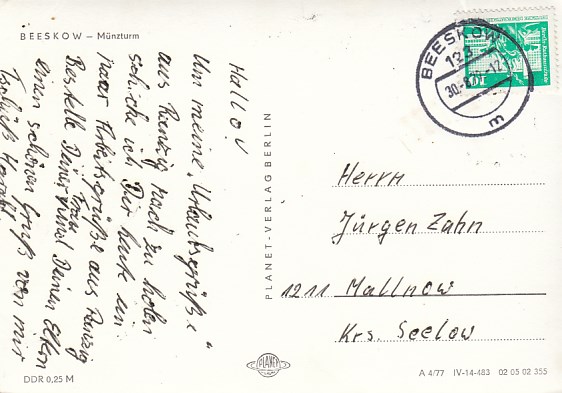 BEESKOW – Münzturm
Hallo!
Um meine "Urlaubsgrüße"
aus Ranzig nach zu holen
schicke ich Dir heute ein
paar Herbstgrüße aus Ranzig
Bestelle Deiner Frau und Deinen Eltern
einen schönen Gruß von mir
Tschüß
PLANET-VERLAG BERLIN
BEESKOW
123
30.-8.
m
Herrn
Jürgen Zahn
1211 Mallnow
Krs. Seelow
PLANET
DDR 0,25 M
A 4/77 IV-14-483 02 05 02 355